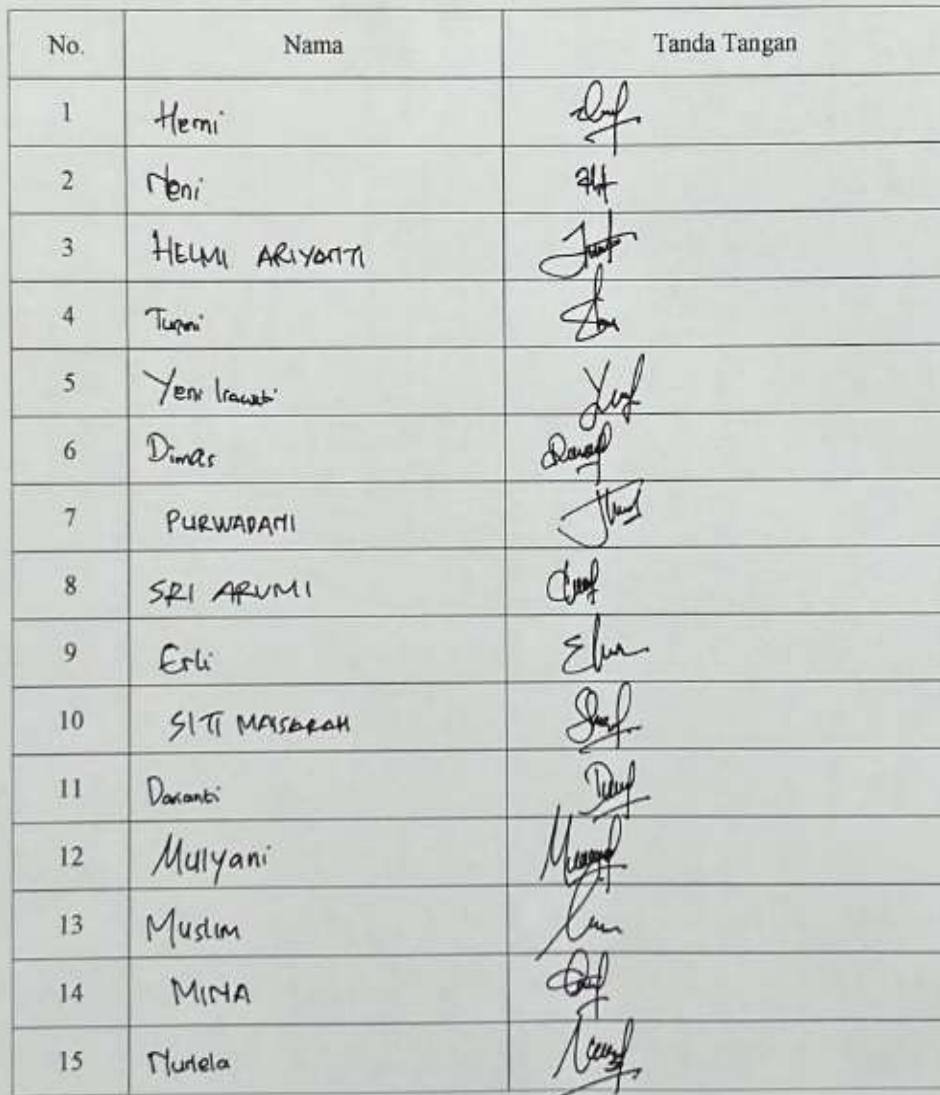 No. Nama Tanda Tangan
1 Herni
2 Neni
3 HELMI ARIYANTI
4
5 Yeni Irawati
6 Dimas
7 PURWADANI
8 SRI ARUMI
9 Erli
10 SITI MAISARAH
11
12 Mulyani
13 Muslim
14 MINA
15 Nurlela